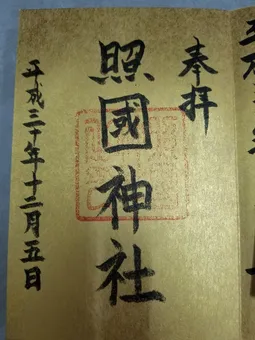 奉拝
照國神社
平成三十年十二月五日